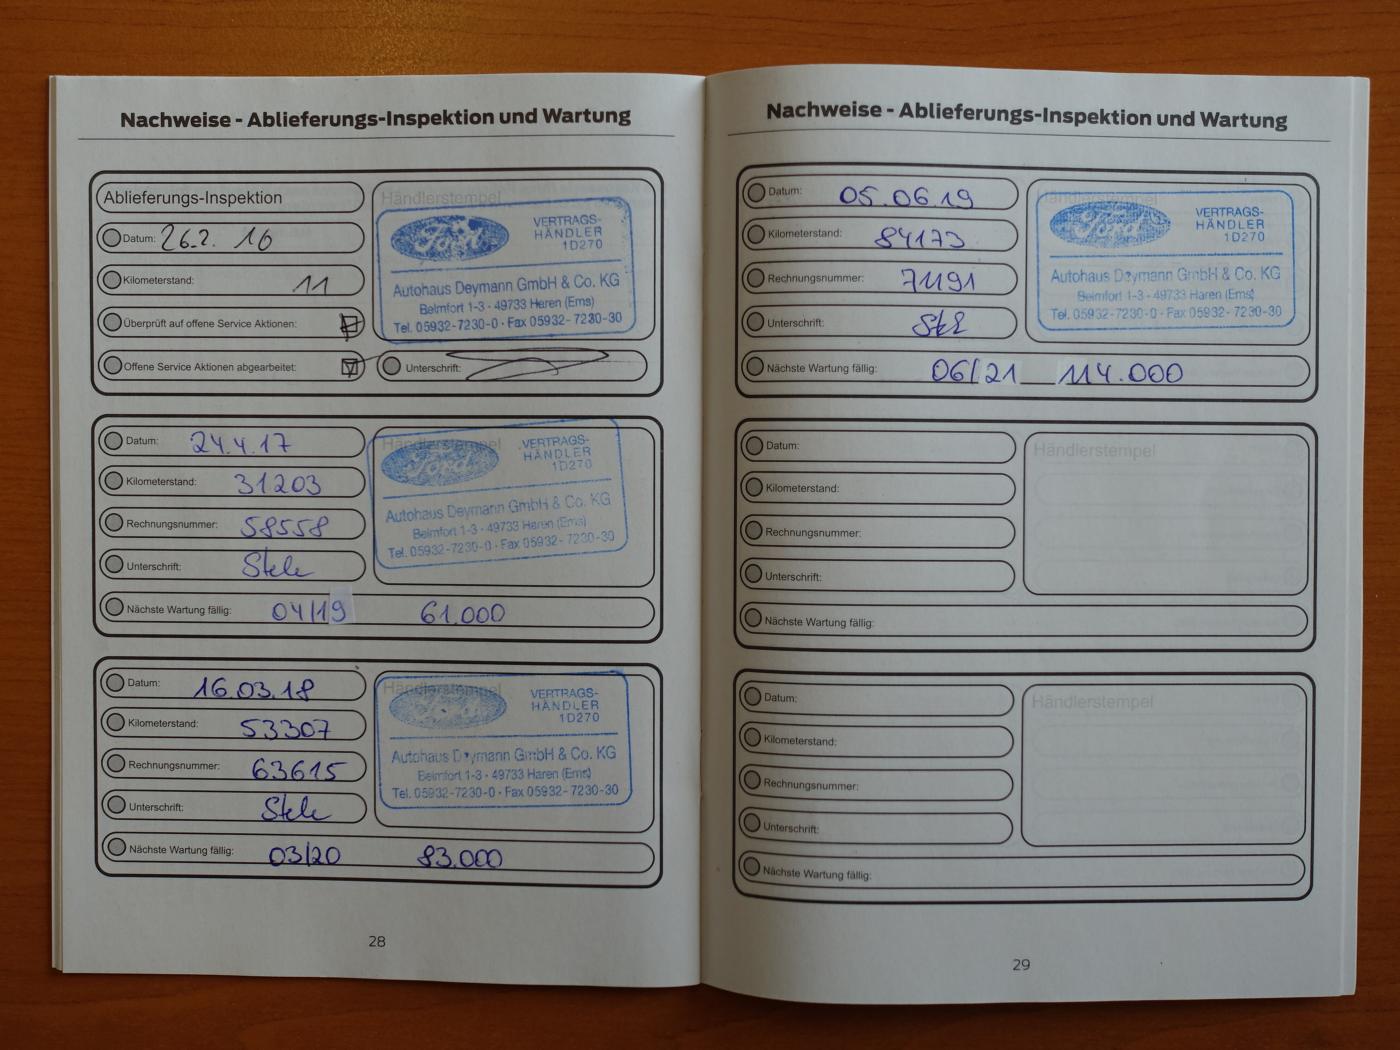 Nachweise - Ablieferungs-Inspektion und Wartung
Ablieferungs-Inspektion
Datum: 26.2. 16
Kilometerstand: 11
Überprüft auf offene Service Aktionen:
Offene Service Aktionen abgearbeitet:
Händlerstempel
Ford
VERTRAGS-
HÄNDLER
1D270
Autohaus Deymann GmbH & Co. KG
Belmfort 1-3 - 49733 Haren (Ems)
Tel. 05932-7230-0 · Fax 05932-7230-30
Unterschrift:
Datum: 24.4.17
Kilometerstand: 31203
Rechnungsnummer: 58558
Unterschrift:
Händlerstempel
Ford
VERTRAGS-
HÄNDLER
1D270
Autohaus Deymann GmbH & Co. KG
Belmfort 1-3 - 49733 Haren (Ems)
Tel. 05932-7230-0 · Fax 05932-7230-30
Nächste Wartung fällig: 04/19 61.000
Datum: 16.03.18
Kilometerstand: 53307
Rechnungsnummer: 63615
Unterschrift:
Händlerstempel
Ford
VERTRAGS-
HÄNDLER
1D270
Autohaus Deymann GmbH & Co. KG
Belmfort 1-3 - 49733 Haren (Ems)
Tel. 05932-7230-0 · Fax 05932-7230-30
Nächste Wartung fällig: 03/20 83.000
28
Nachweise - Ablieferungs-Inspektion und Wartung
Datum: 05.06.19
Kilometerstand: 84173
Rechnungsnummer: 71191
Unterschrift:
Händlerstempel
Ford
VERTRAGS-
HÄNDLER
1D270
Autohaus Deymann GmbH & Co. KG
Belmfort 1-3 - 49733 Haren (Ems)
Tel. 05932-7230-0 · Fax 05932-7230-30
Nächste Wartung fällig: 06/21 114.000
Datum:
Kilometerstand:
Rechnungsnummer:
Unterschrift:
Händlerstempel
Nächste Wartung fällig:
Datum:
Kilometerstand:
Rechnungsnummer:
Unterschrift:
Händlerstempel
Nächste Wartung fällig:
29